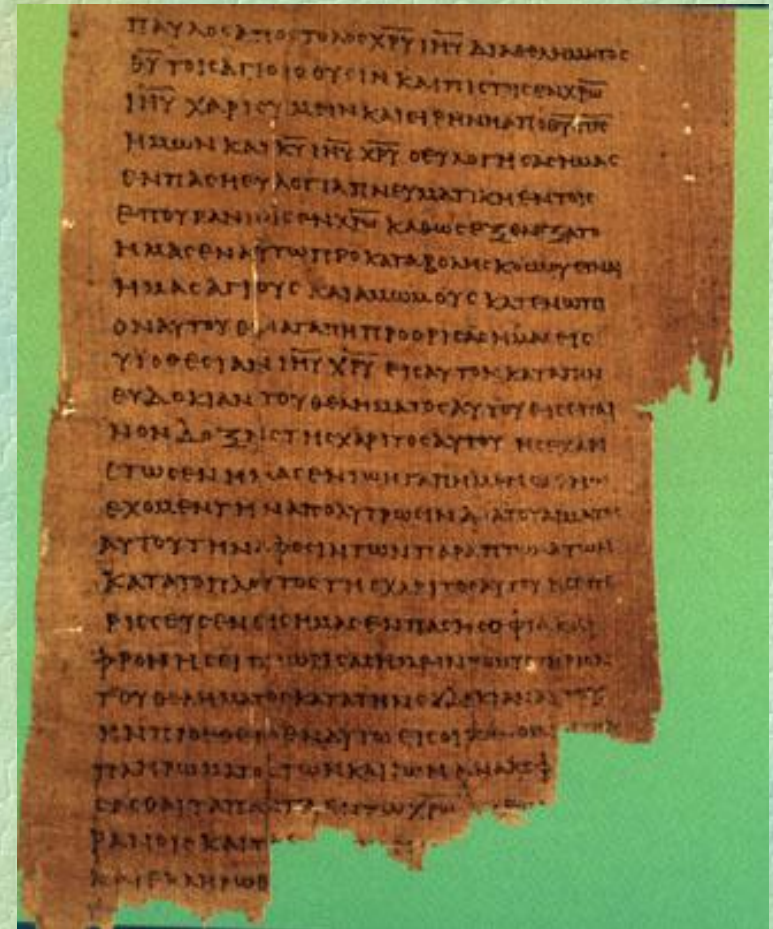 ΠΑΥΛΟϹΑΠΟϹΤΟΛΟϹΧ̅Ρ̅Υ̅ Ι̅Η̅Υ̅ ΔΙΑΘΕΛΗΜΑΤΟϹ
Θ̅Υ̅ ΤΟΙϹΑΓΙΟΙϹΟΥϹΙΝ ΚΑΙΠΙϹΤΟΙϹΕΝΧ̅Ρ̅Ω̅
Ι̅Η̅Υ̅ ΧΑΡΙϹΥΜΕΙΝΚΑΙΕΙΡΗΝΗΑΠΟΘ̅Υ̅Π̅Ρ̅Ϲ̅
ΗΜΩΝ ΚΑΙ Κ̅Υ̅ Ι̅Η̅Υ̅ Χ̅Ρ̅Υ̅ ΟΕΥΛΟΓΗϹΑϹΗΜΑϹ
ΕΝΠΑϹΗΕΥΛΟΓΙΑΠΝΕΥΜΑΤΙΚΗΕΝΤΟΙϹ
ΕΠΟΥΡΑΝΙΟΙϹΕΝΧ̅Ρ̅Ω̅ ΚΑΘΩϹΕΞΕΛΕΞΑΤΟ
ΗΜΑϹΕΝΑΥΤΩΠΡΟΚΑΤΑΒΟΛΗϹΚΟϹΜΟΥΕΙΝΑΙ
ΗΜΑϹΑΓΙΟΥϹ ΚΑΙΑΜΩΜΟΥϹ ΚΑΤΕΝΩΠΙ
ΟΝΑΥΤΟΥΕΝΑΓΑΠΗΠΡΟΟΡΙϹΑϹΗΜΑϹΕΙϹ
ΥΙΟΘΕϹΙΑΝ Ι̅Η̅Υ̅ Χ̅Ρ̅Υ̅ ΕΙϹΑΥΤΟΝΚΑΤΑΤΗΝ
ΕΥΔΟΚΙΑΝ ΤΟΥΘΕΛΗΜΑΤΟϹΑΥΤΟΥΕΙϹΕΠΑΙ
ΝΟΝΔΟΞΗϹΤΗϹΧΑΡΙΤΟϹΑΥΤΟΥ ΗϹΕΧΑΡΙ
ϹΤΩϹΕΝΗΜΑϹΕΝΤΩΗΓΑΠΗΜΕΝΩΕΝΩ
ΕΧΟΜΕΝΤΗΝΑΠΟΛΥΤΡΩϹΙΝΔΙΑΤΟΥΑΙΜΑΤΟϹ
ΑΥΤΟΥΤΗΝΑΦΕϹΙΝΤΩΝΠΑΡΑΠΤΩΜΑΤΩΝ
ΚΑΤΑΤΟΠΛΟΥΤΟϹΤΗϹΧΑΡΙΤΟϹΑΥΤΟΥΗϹΕΠΕ
ΡΙϹϹΕΥϹΕΝΕΙϹΗΜΑϹΕΝΠΑϹΗϹΟΦΙΑΚΑΙ
ΦΡΟΝΗϹΕΙΓΝΩΡΙϹΑϹΗΜΕΙΝΤΟΜΥϹΤΗΡΙΟΝ
ΤΟΥΘΕΛΗΜΑΤΟϹΚΑΤΑΤΗΝΕΥΔΟΚΙΑΝΑΥΤΟΥ
ΗΝΠΡΟΕΘΕΤΟΕΝΑΥΤΩΕΙϹΟΙΚΟΝΟΜ
ΠΛΗΡΩΜΑΤΟϹΤΩΝΚΑΙΡΩΝΑΝΑΚΕΦ
ϹΑϹΘΑΙΤΑΠΑΝΤΑΕΝΤΩΧ̅Ρ̅Ω̅
ΡΑΝΟΙϹΚΑΙΤ
ΚΑΙΕΚΛΗΡΩΘ